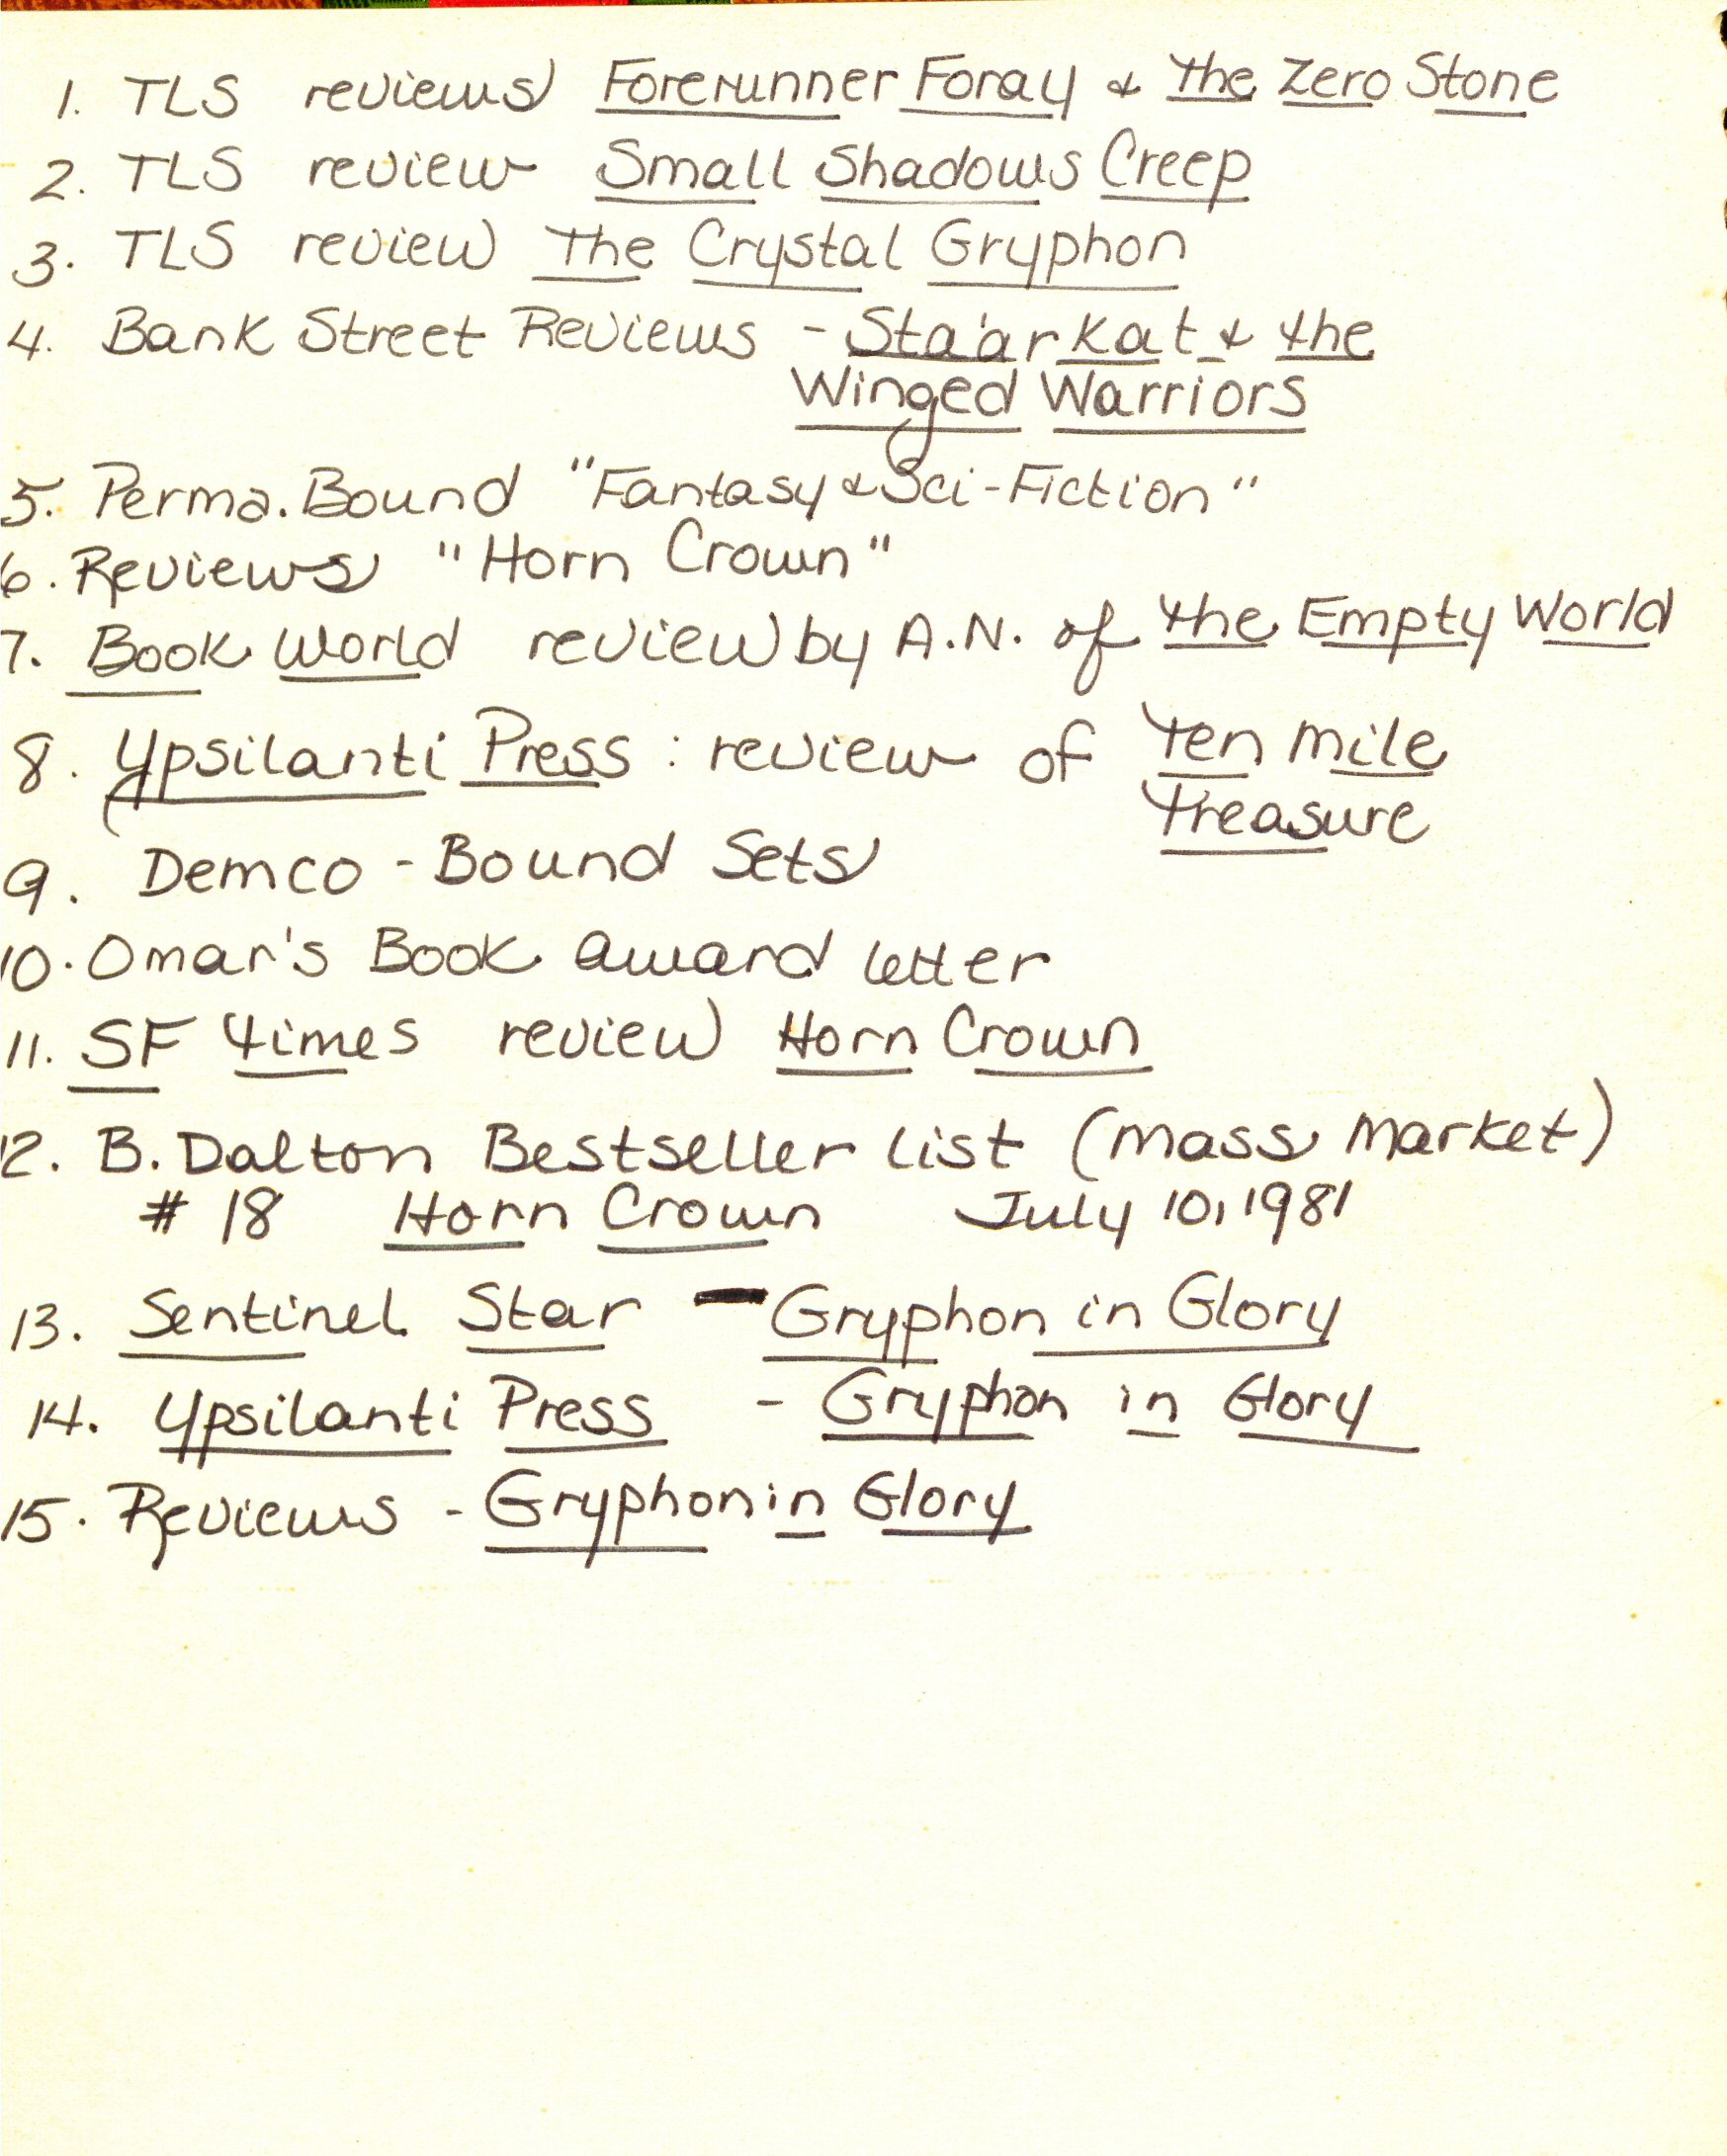 1. TLS reviews Forerunner Foray & The Zero Stone
2. TLS review Small Shadows Creep
3. TLS review The Crystal Gryphon
4. Bank Street Reviews - Sta'ar Kat & the
Winged Warriors
5. Perma.Bound "Fantasy & Sci-Fiction"
6. Reviews "Horn Crown"
7. Book World review by A.N. of The Empty World
8. Ypsilanti Press : review of Ten Mile
Treasure
9. Demco - Bound Sets
10. Omar's Book award letter
11. SF Times review Horn Crown
12. B. Dalton Bestseller List (Mass Market)
# 18 Horn Crown July 10, 1981
13. Sentinel Star - Gryphon in Glory
14. Ypsilanti Press - Gryphon in Glory
15. Reviews - Gryphon in Glory